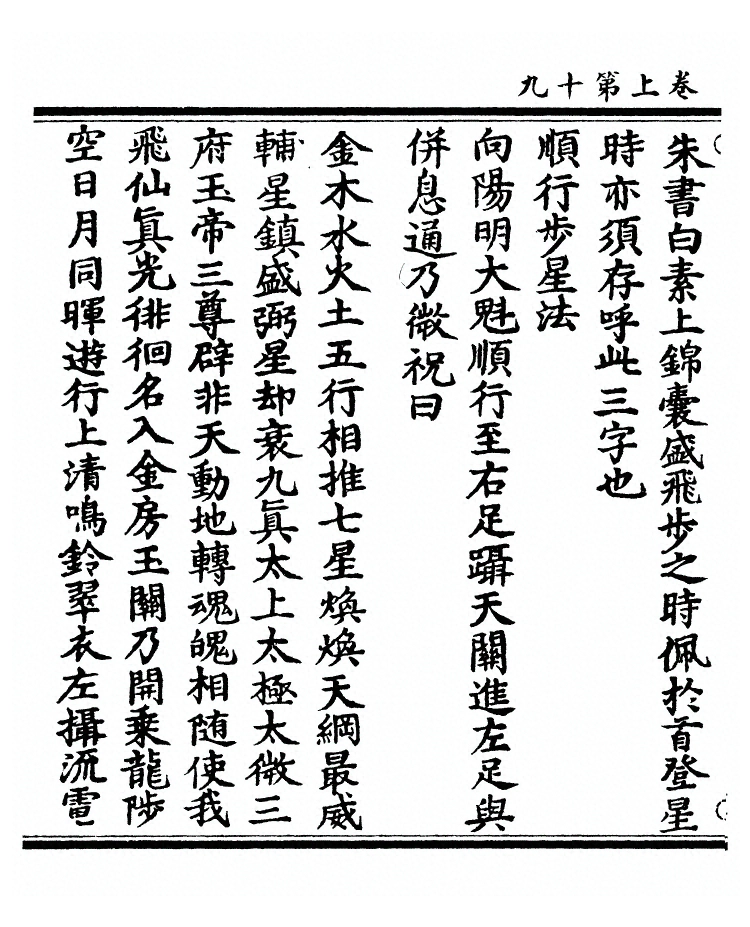 卷上第十九
朱書白素上錦囊盛飛步之時佩於首登星
時亦須存呼此三字也
順行步星法
向陽明大魁順行至右足躡天關進左足與
併息通乃微祝曰
金木水火土五行相推七星煥煥天綱最威
輔星鎮盛弼星却衰九真太上太極太微三
府玉帝三尊辟非天動地轉魂魄相随使我
飛仙真光徘徊名入金房玉關乃開乗龍陟
空日月同暉遊行上清鳴鈴翠衣左攝流電